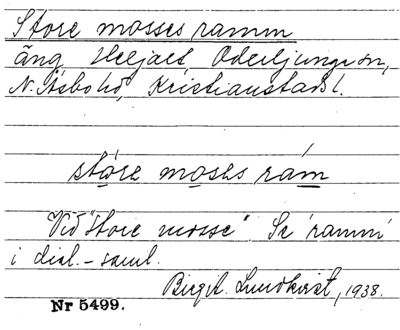 Store mosses ramm
äng Heljalt, Oderljunga sn,
N. Åsbo hd, Kristianstads l.
store moses ràm
Vid "Store mosse" Se 'ramm'
i dial.-saml.
Birgit Lundkvist, 1938.
Nr 5499.